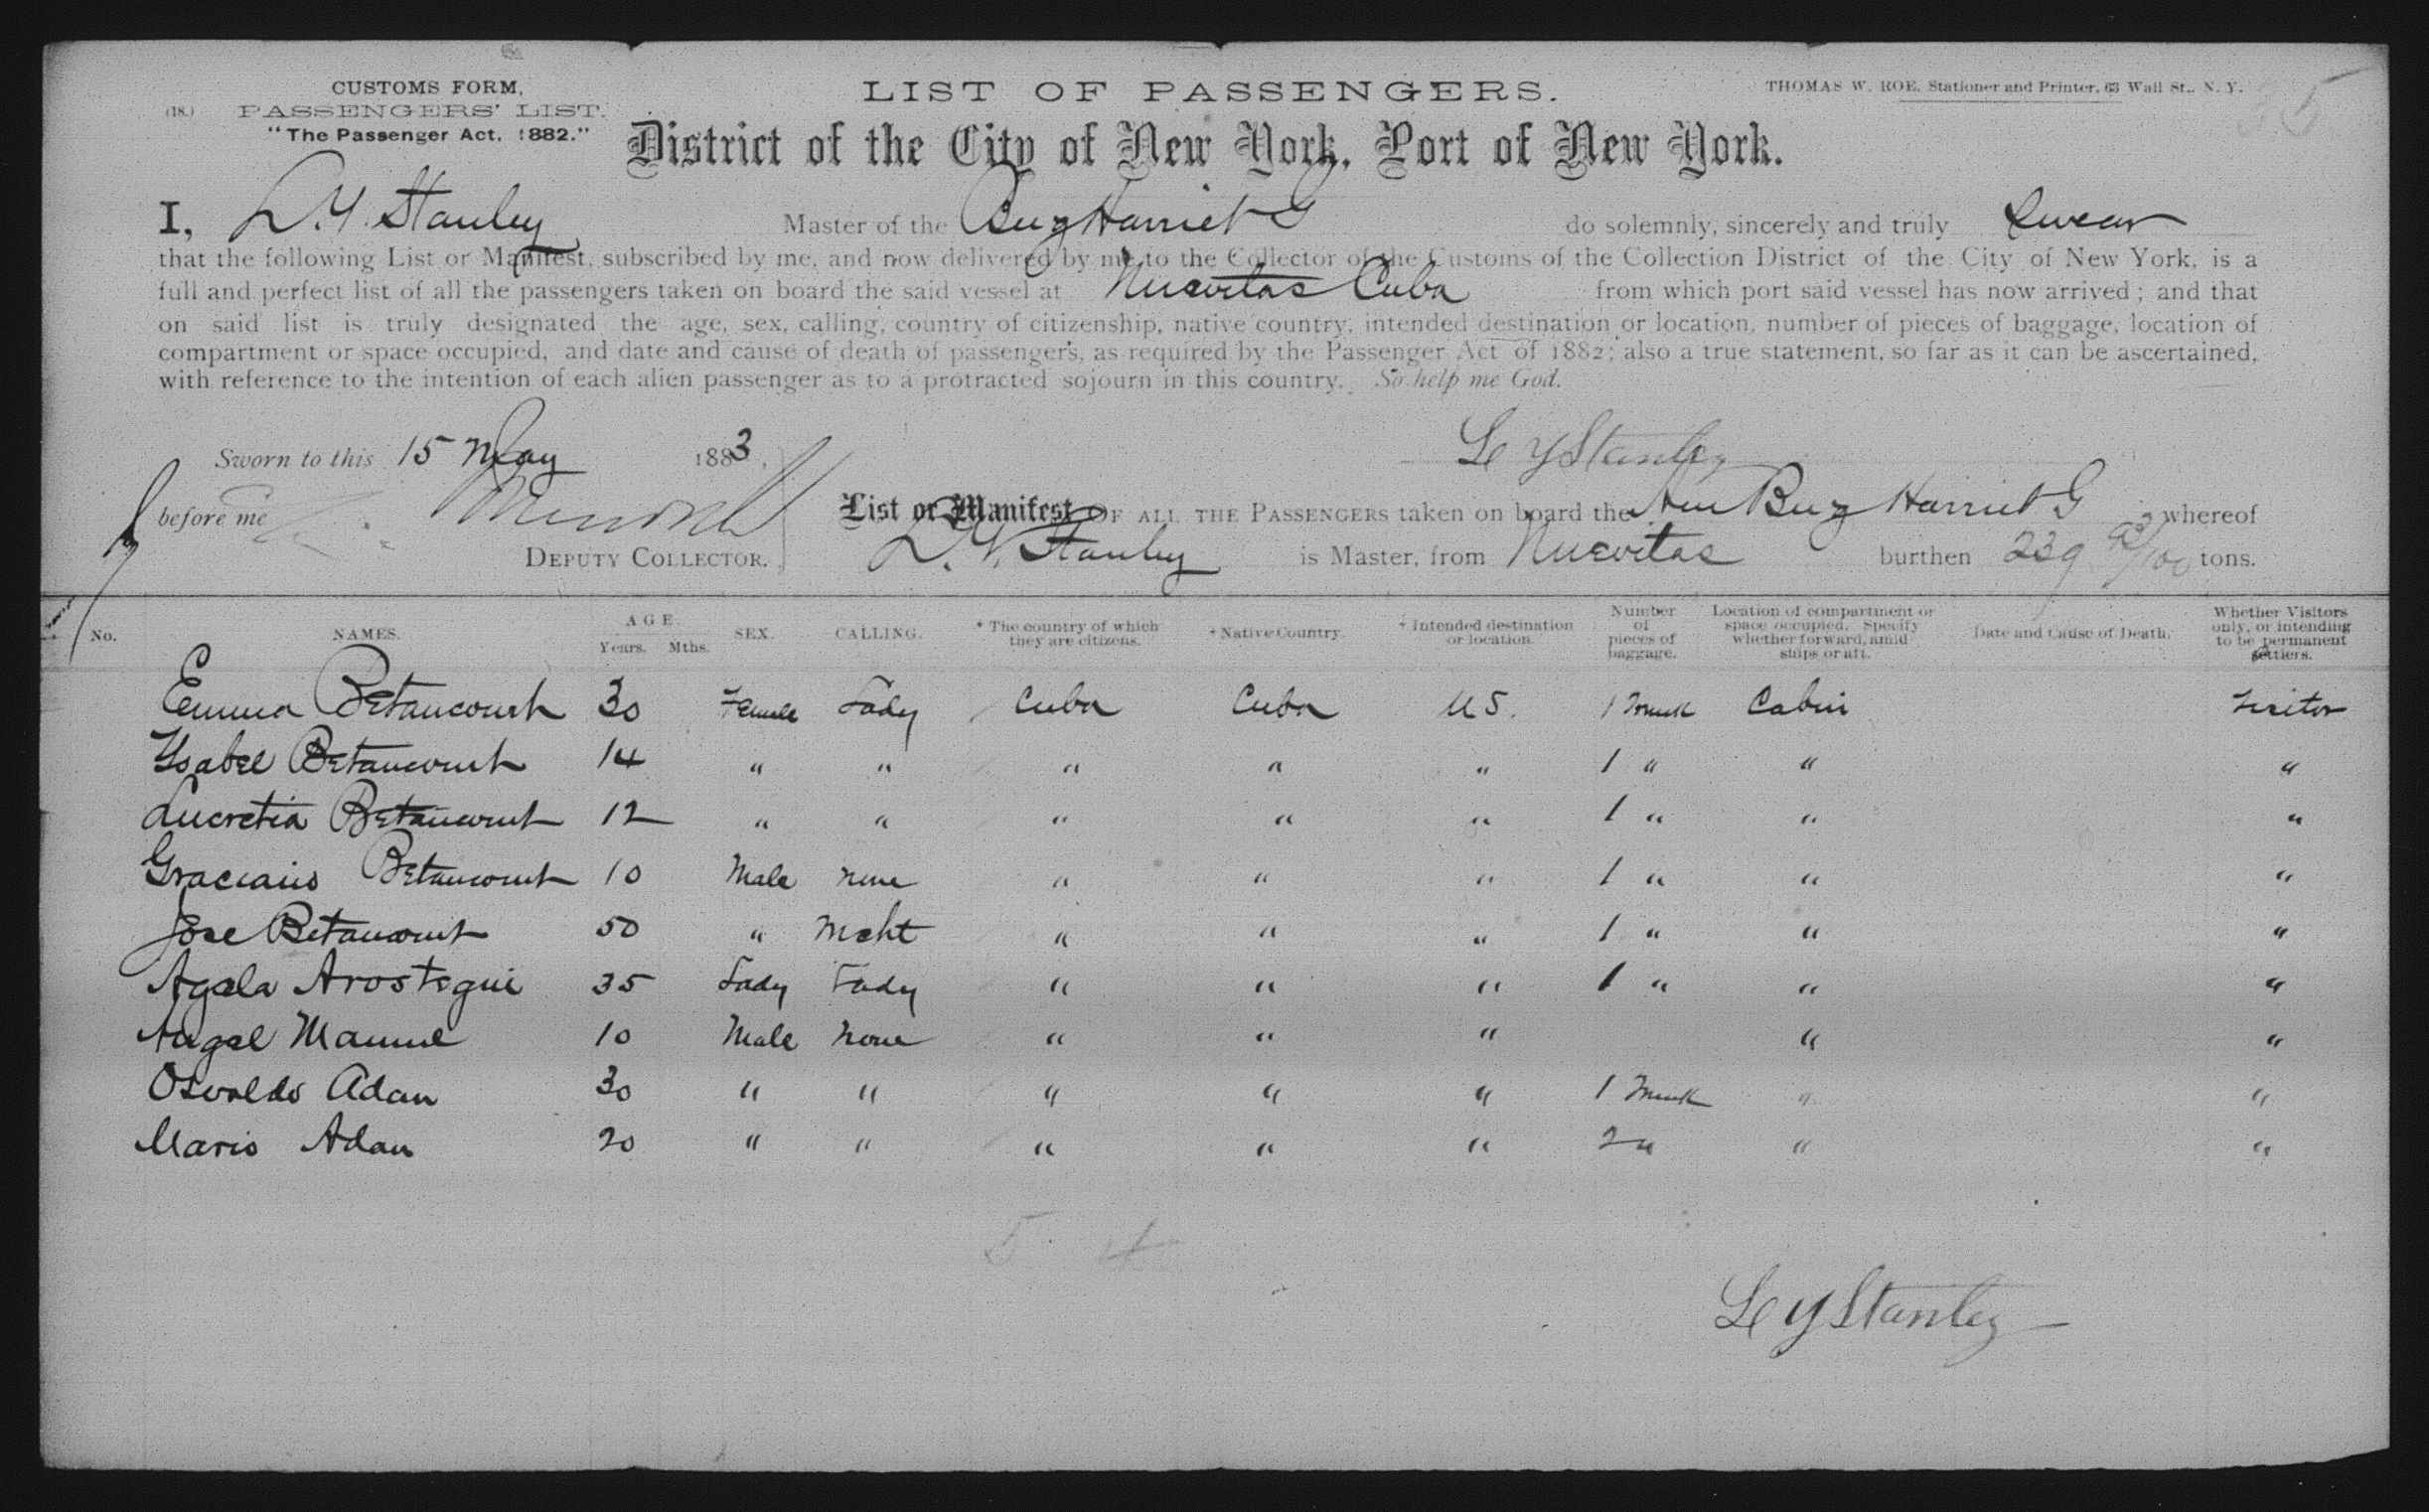 CUSTOMS FORM,
(18.) PASSENGERS' LIST.
"The Passenger Act, 1882."
LIST OF PASSENGERS.
THOMAS W. ROE, Stationer and Printer, 63 Wall St., N. Y.
District of the City of New York, Port of New York.
I, L. Y. Stanley Master of the Brig Harriet G do solemnly, sincerely and truly Swear
that the following List or Manifest, subscribed by me, and now delivered by me to the Collector of the Customs of the Collection District of the City of New York, is a
full and perfect list of all the passengers taken on board the said vessel at Nuevitas Cuba from which port said vessel has now arrived; and that
on said list is truly designated the age, sex, calling, country of citizenship, native country, intended destination or location, number of pieces of baggage, location of
compartment or space occupied, and date and cause of death of passengers, as required by the Passenger Act of 1882; also a true statement, so far as it can be ascertained,
with reference to the intention of each alien passenger as to a protracted sojourn in this country. So help me God.
Sworn to this 15 May 1883,
L Y Stanley
before me
DEPUTY COLLECTOR.
List or Manifest OF ALL THE PASSENGERS taken on board the Am Brig Harriet G whereof
L. Y. Stanley is Master, from Nuevitas burthen 239 93/100 tons.
No. NAMES. AGE. Years. Mths. SEX. CALLING. * The country of which they are citizens. * Native Country. * Intended destination or location. Number of pieces of baggage. Location of compartment or space occupied. Specify whether forward, amid ships or aft. Date and Cause of Death. Whether Visitors only, or intending to be permanent settlers.
Emma Betancourt 30 Female Lady Cuba Cuba U S. 1 Trunk Cabin Visitor
Ysabel Betancourt 14 " " " " " 1 " " "
Lucretia Betancourt 12 " " " " " 1 " " "
Graciano Betancourt 10 Male none " " " 1 " " "
Jose Betancourt 50 " Mcht " " " 1 " " "
Agela Arostegui 35 Lady Lady " " " 1 " " "
Angel Manuel 10 Male none " " " " "
Osvaldo Adan 30 " " " " " 1 Trunk " "
Mario Adan 20 " " " " " 2 " " "
5 4
L Y Stanley